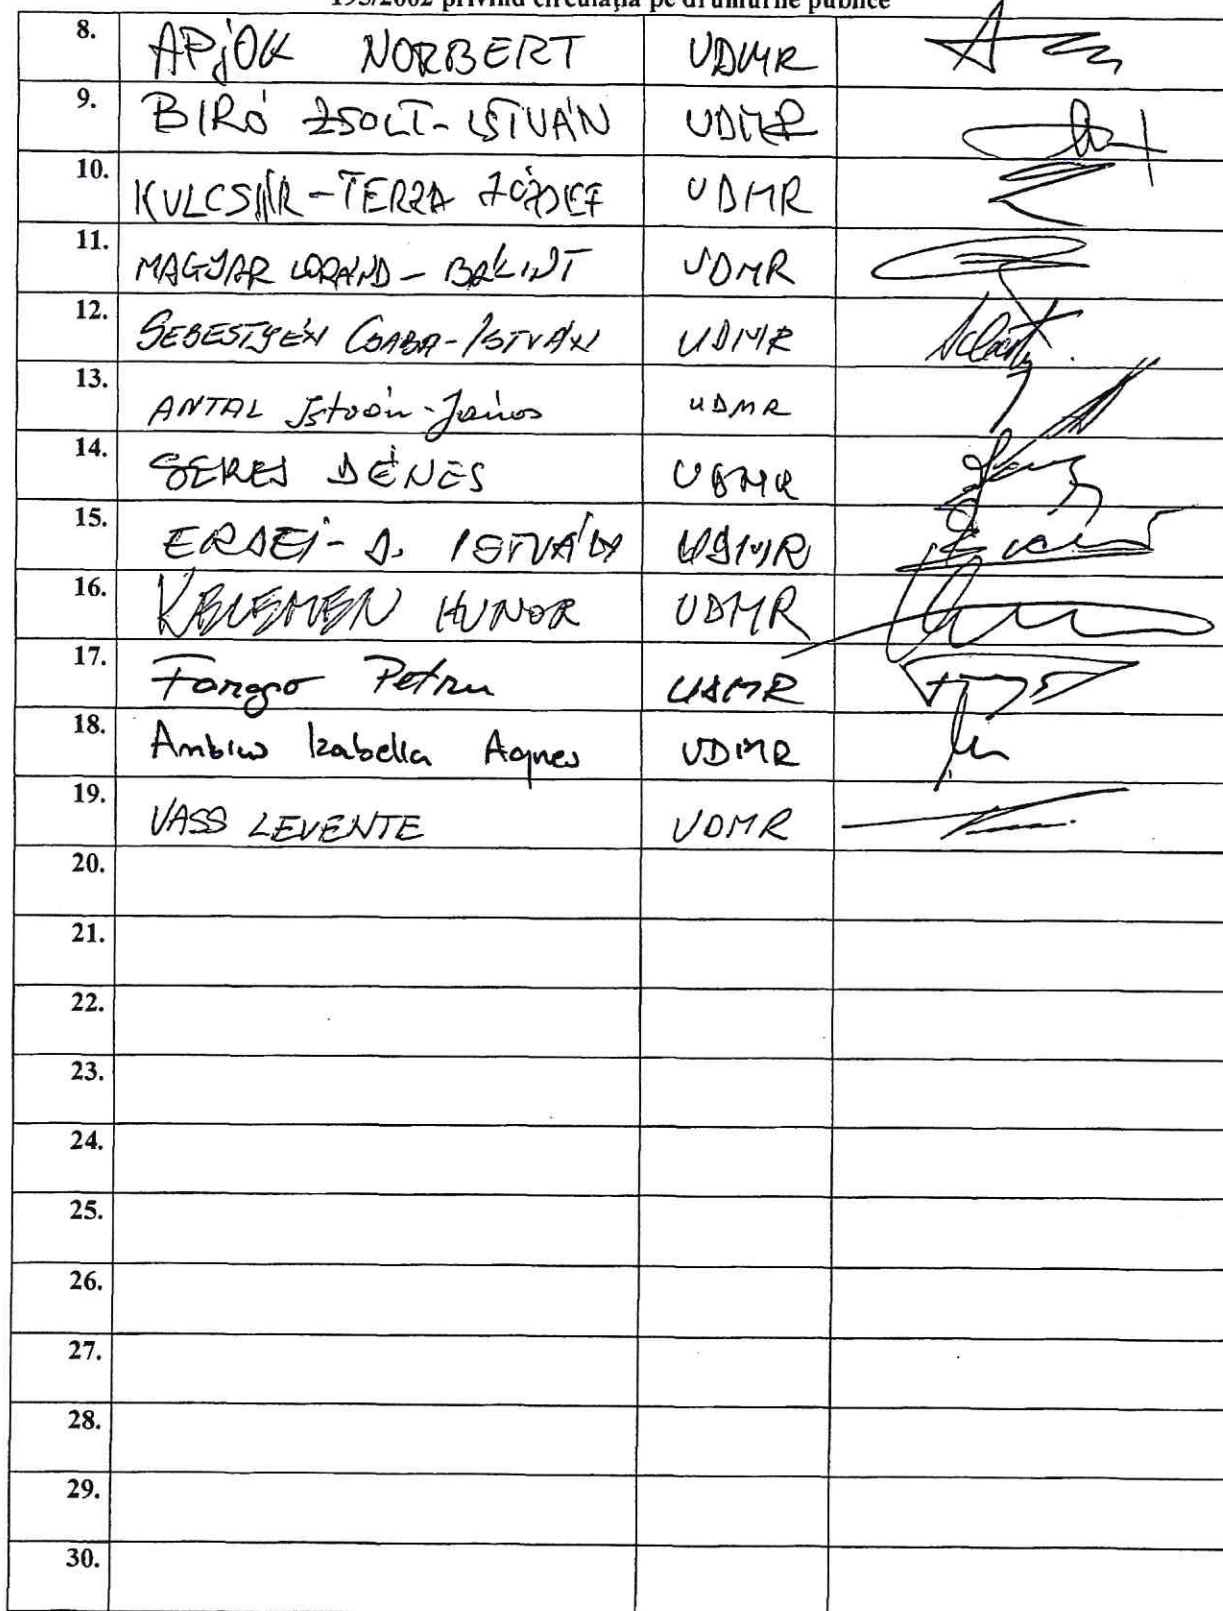 195/2002 privind circulaţia pe drumurile publice
8. APjOK NORBERT UDMR
9. BIRÓ ZSOLT-ISTVÁN UDMR
10. KULCSÁR-TERZA JÓZSEF UDMR
11. MAGYAR LORÁND-BÁLINT UDMR
12. SEBESTYÉN CSABA-ISTVÁN UDMR
13. ANTAL István-János UDMR
14. SERES DÉNES UDMR
15. ERDEI-D. ISTVÁN UDMR
16. KELEMEN HUNOR UDMR
17. Farago Petru UDMR
18. Ambrus Izabella Agnes UDMR
19. VASS LEVENTE UDMR
20.
21.
22.
23.
24.
25.
26.
27.
28.
29.
30.